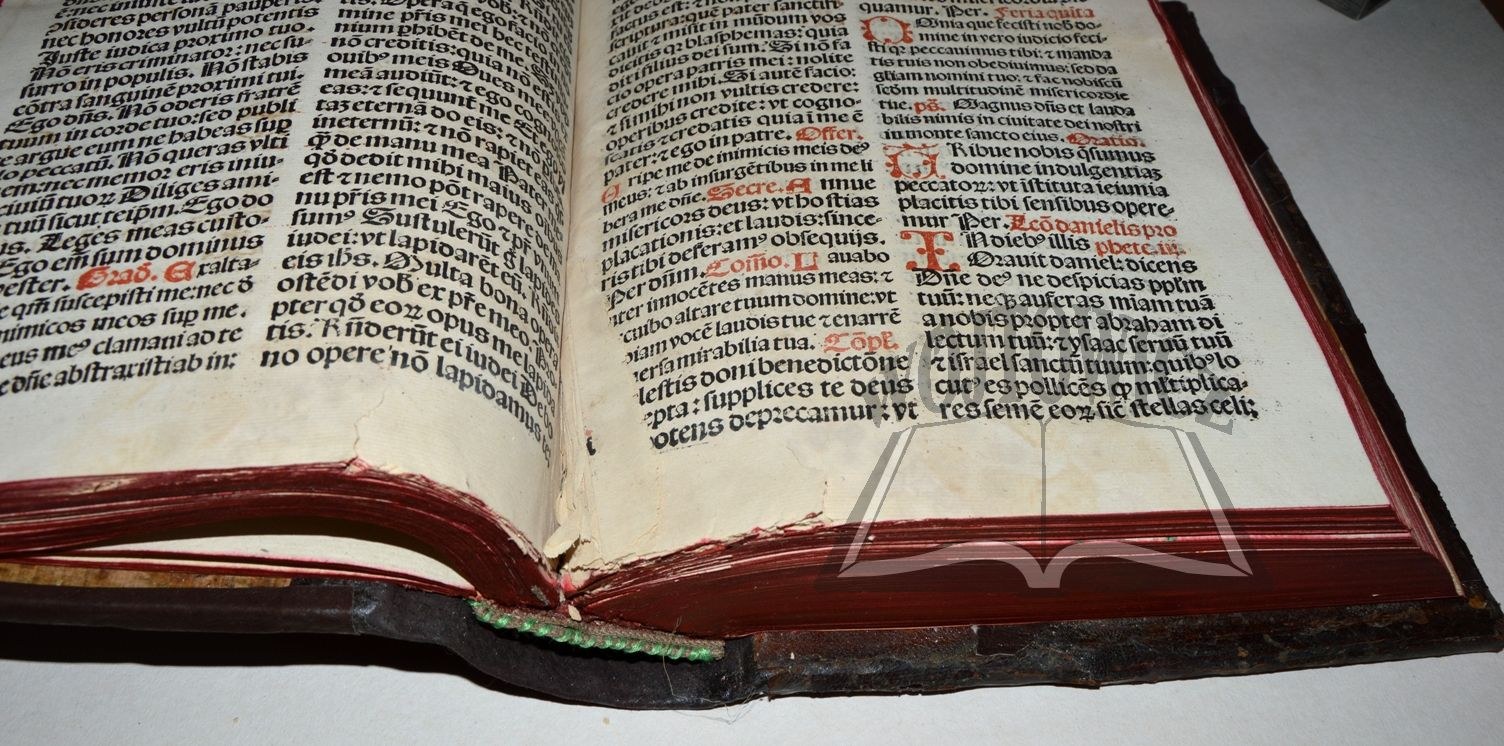 sideres personā pauperis.
nec honores vultū potentis
Juste iudica proximo tuo.
Nō eris criminator: nec su-
surro in populis. Nō stabis
cōtra sanguinē proximi tui.
Ego dn̄s. Nō oderis fratrē
tuum in corde tuo: sed publi
argue eum ne habeas sup
peccatū. Nō queras vlti
nec memor eris iniu-
ciuiū tuoꝝ Diliges ami-
tuū sicut teip̄m. Ego do
Leges meas custo-
Ego em̄ sum dominus
vester. Grad̄. Exalta-
qm̄ suscepisti me: nec ō
inimicos meos sup me.
deus me⁹ clamaui ad te
dn̄e abstraxisti ab in:
tis. Opera q̄ ego facio
mine pr̄is mei hec testi
nium ꝑhibēt de me. Sed
nō creditis: quia nō est
ouib⁹ meis Oues mee
meā audiūt: ⁊ ego cogno
eas: ⁊ sequunt me Et ego
taz eternā do eis: ⁊ nō
in eternū: ⁊ nō rapiet eas
ꝙ de manu mea Pater
qd̄ dedit mihi maius oīb
est ⁊ nemo pōt rapere de ma
nu pr̄is mei Ego ⁊ pr̄ vnum
sum⁹ Sustulerūt g̊ lapides
iudei: vt lapidarēt eū. Rn̄d
eis ih̄s. Multa bona opera
ostēdi vob̄ ex pr̄e meo. Pro
pter qd̄ eoꝝ opus me lapida
tis. Rn̄derūt ei iudei De bo
no opere nō lapidamus te
scriptura: quē pater sanctifi-
cauit ⁊ misit in mūdum vos
dicitis qr blasphemas: quia
dixi filius dei sum. Si nō fa
cio opera patris mei: nolite
credere mihi. Si autē facio:
⁊ si mihi non vultis credere:
operibus credite: vt cogno-
scatis ⁊ credatis quia ī me ē
pater: ⁊ ego in patre. Offer.
Eripe me de inimicis meis de⁹
meus: ⁊ ab insurgētibus in me li
bera me dn̄e. Secre. Annue
misericors deus: vt hostias
placationis: et laudis: since-
ris tibi deferam⁹ obsequijs.
Per dn̄m. Cōmo. Lauabo
inter innocētes manus meas: ⁊
circuibo altare tuum domine: vt
audiam vocē laudis tue ⁊ enarrē
vniuersa mirabilia tua. Cōpl̄.
celestis doni benedictōne
cepta: supplices te deus
potens deprecamur: vt
quamur. Per. Feria quīta
Omnia que fecisti nob̄ do-
mine in vero iudicio feci-
sti qr peccauimus tibi: ⁊ manda
tis tuis non obediuimus: sed da
gl̄iam nomini tuo: ⁊ fac nobiscū
scd̄m multitudinē misericordie
tue. ps̄. Magnus dn̄s et lauda
bilis nimis in ciuitate dei nostri
in monte sancto eius. Oratio.
Tribue nobis q̄sumus
domine indulgentiaz
peccatoꝝ: vt īstituta ieiunia
placitis tibi sensibus opere-
mur Per. Lcō danielis pro
In dieb⁹ illis phete. iij.
Orauit daniel: dicens
Dn̄e de⁹ ne despicias ppl̄m
tuū: neqꝫ auferas mīam tuā
a nobis propter abraham di
lectum tuū: ⁊ ysaac seruū tuū
⁊ israel sanctū tuum: quib⁹ lo
cut⁹ es pollicēs ꝙ ml̄tiplica-
res semē eoꝝ sic̄ stellas celi: